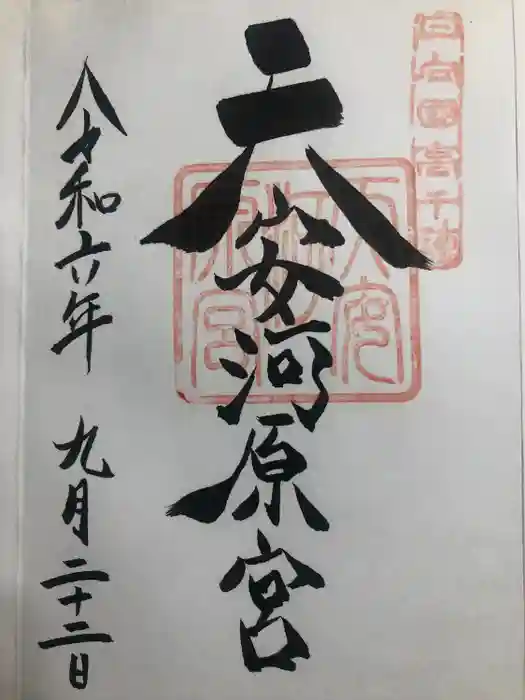 日向國高千穂
天安河原宮
天安河原宮
令和六年 九月二十二日